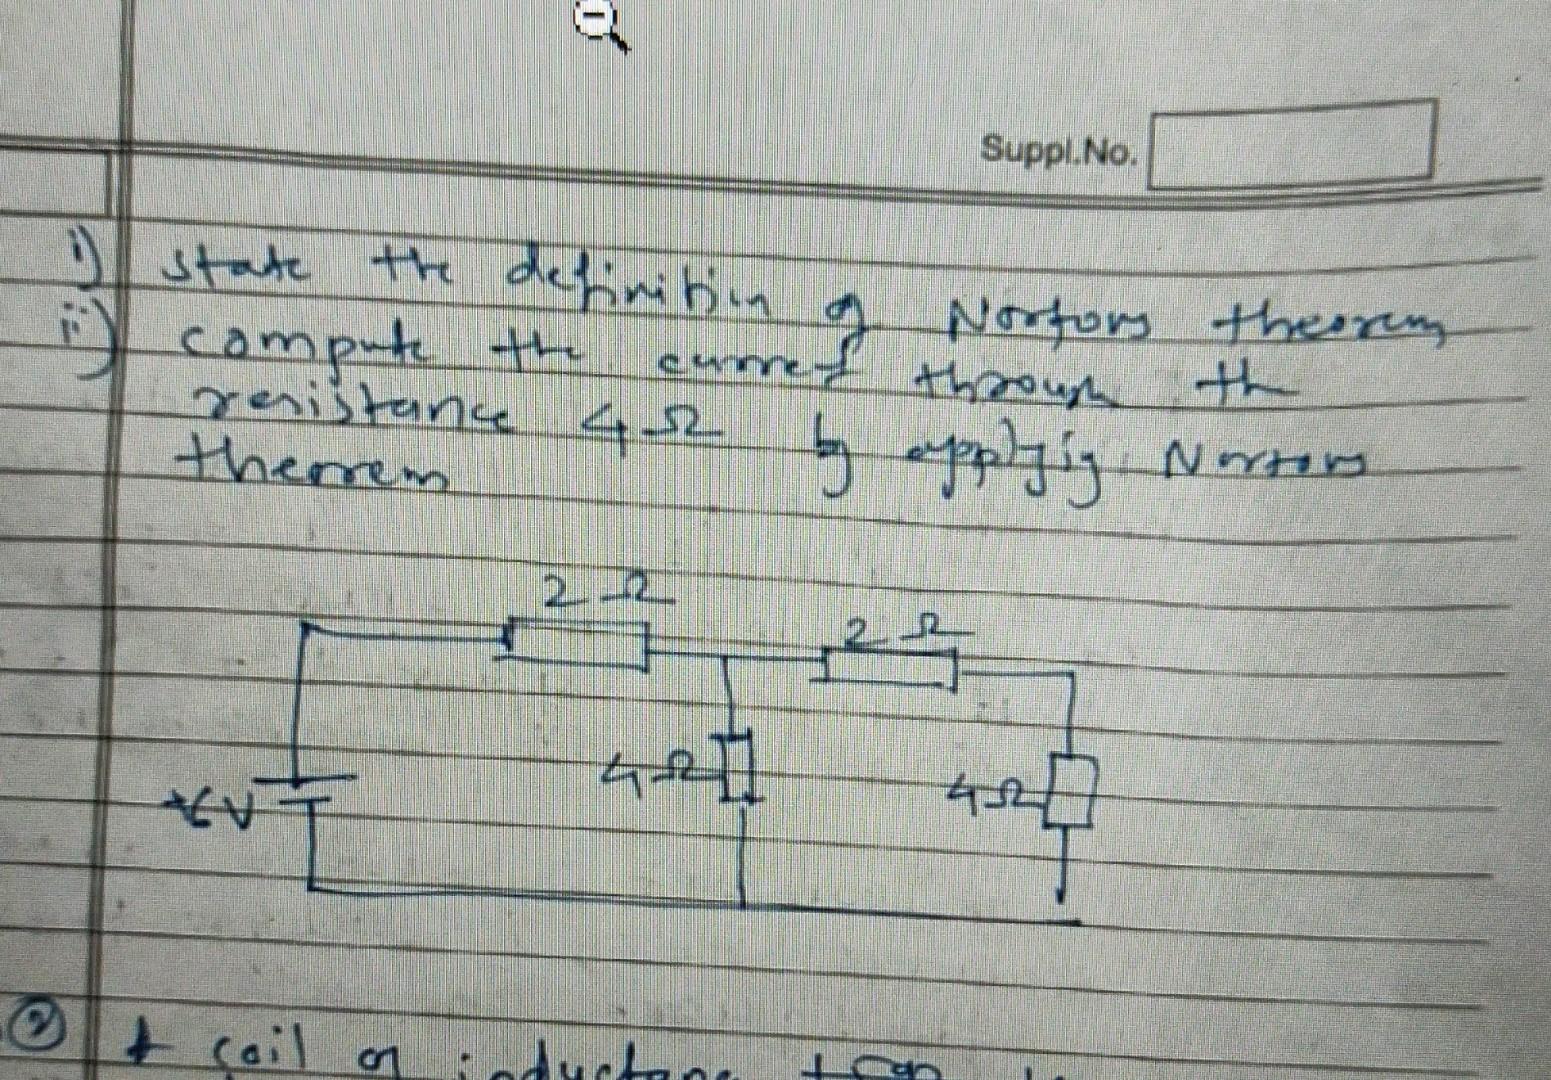 Suppl.No.
i) state the definition of Nortons theorem
ii) compute the current through the
resistance 4 Ω by applyig Nortons
theorem
2 Ω
2 Ω
4Ω
4Ω
6V
② A coil of inductance